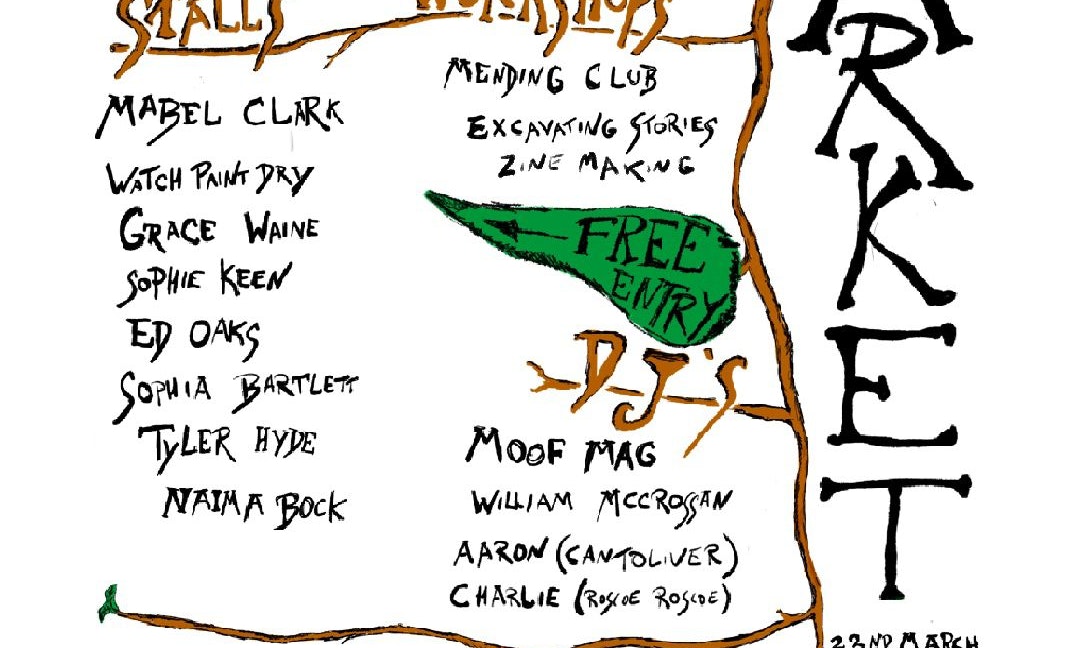 STALLS
WORKSHOPS
MABEL CLARK
WATCH PAINT DRY
GRACE WAINE
SOPHIE KEEN
ED OAKS
SOPHIA BARTLETT
TYLER HYDE
NAIMA BOCK
MENDING CLUB
EXCAVATING STORIES
ZINE MAKING
FREE
ENTRY
DJ'S
MOOF MAG
WILLIAM MCCROSSAN
AARON (CANTOLIVER)
CHARLIE (ROSCOE ROSCOE)
ARKET
22ND MARCH